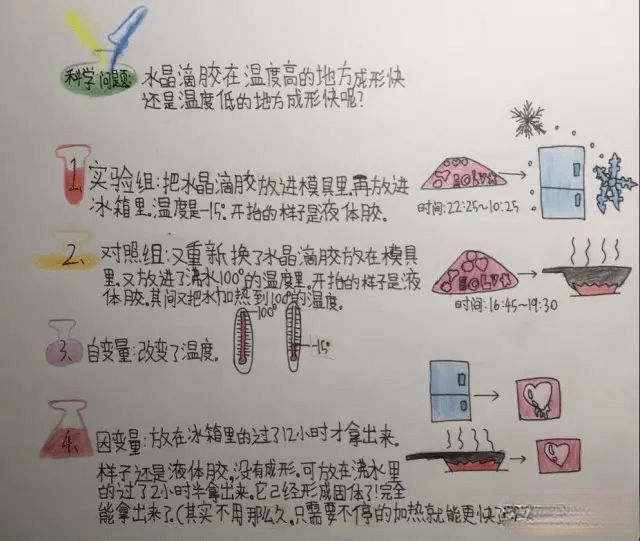 科学问题: 水晶滴胶在温度高的地方成形快
还是温度低的地方成形快呢?
1、实验组:把水晶滴胶放进模具里,再放进
冰箱里。温度是-15°。开始的样子是液体胶。
时间:22:25~10:25
2、对照组:又重新换了水晶滴胶放在模具
里,又放进了沸水100°的温度里。开始的样子是液
体胶。其间又把水加热到100°的温度。
时间:16:45~19:30
3、自变量:改变了温度。
100°
-15°
4、因变量:放在冰箱里的过了12小时才拿出来。
样子还是液体胶,没有成形。可放在沸水里
的过了2小时半拿出来。它已经形成固体了!完全
能拿出来了。(其实不用那么久,只需要不停的加热就能更快了